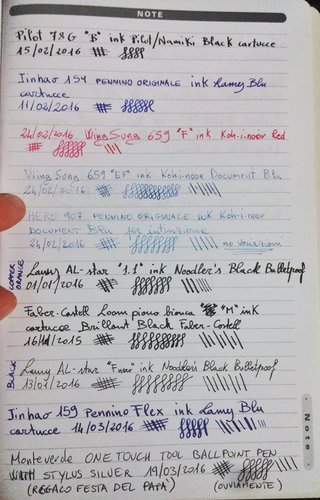 NOTE
Pilot 78G "B" ink Pilot/Namiki Black cartucce
15/02/2016
Jinhao 159 PENNINO ORIGINALE ink Lamy Blu
cartucce
11/02/2016
24/02/2016 Wing Sung 659 "F" ink Koh-i-noor Red
Wing Sung 659 "EF" ink Koh-i-noor Document Blu
24/02/2016
HERO 907 PENNINO ORIGINALE ink Koh-i-noor
DOCUMENT Blu per intenzione
24/02/2016 no variazioni
COPPER
ORANGE
Lamy AL-star "1.1" ink Noodler's Black Bulletproof
01/01/2016
Faber-Castell Loom piano bianca "M" ink
cartucce Brillant Black Faber-Castell
2015
BLACK
Lamy AL-star ink Noodler's Black Bulletproof
13/07/2016
Jinhao 159 Pennino Flex ink Lamy Blu
cartucce 14/03/2016
Monteverde ONE TOUCH TOOL BALLPOINT PEN
WITH STYLUS SILVER 19/03/2016
(REGALO FESTA DEL PAPÀ) (OVVIAMENTE)
Note